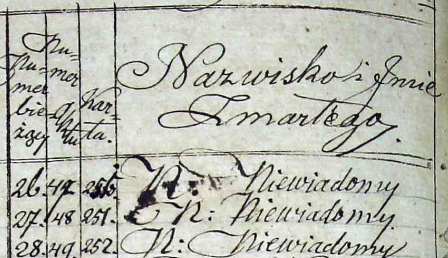 Numer bieżący
Numer Aktu
Karta.
Nazwisko i Imie
Zmartego.
26. 47. 256. N: Niewiadomy
27. 48. 251. N: Niewiadomy
28. 49. 252. N: Niewiadomy